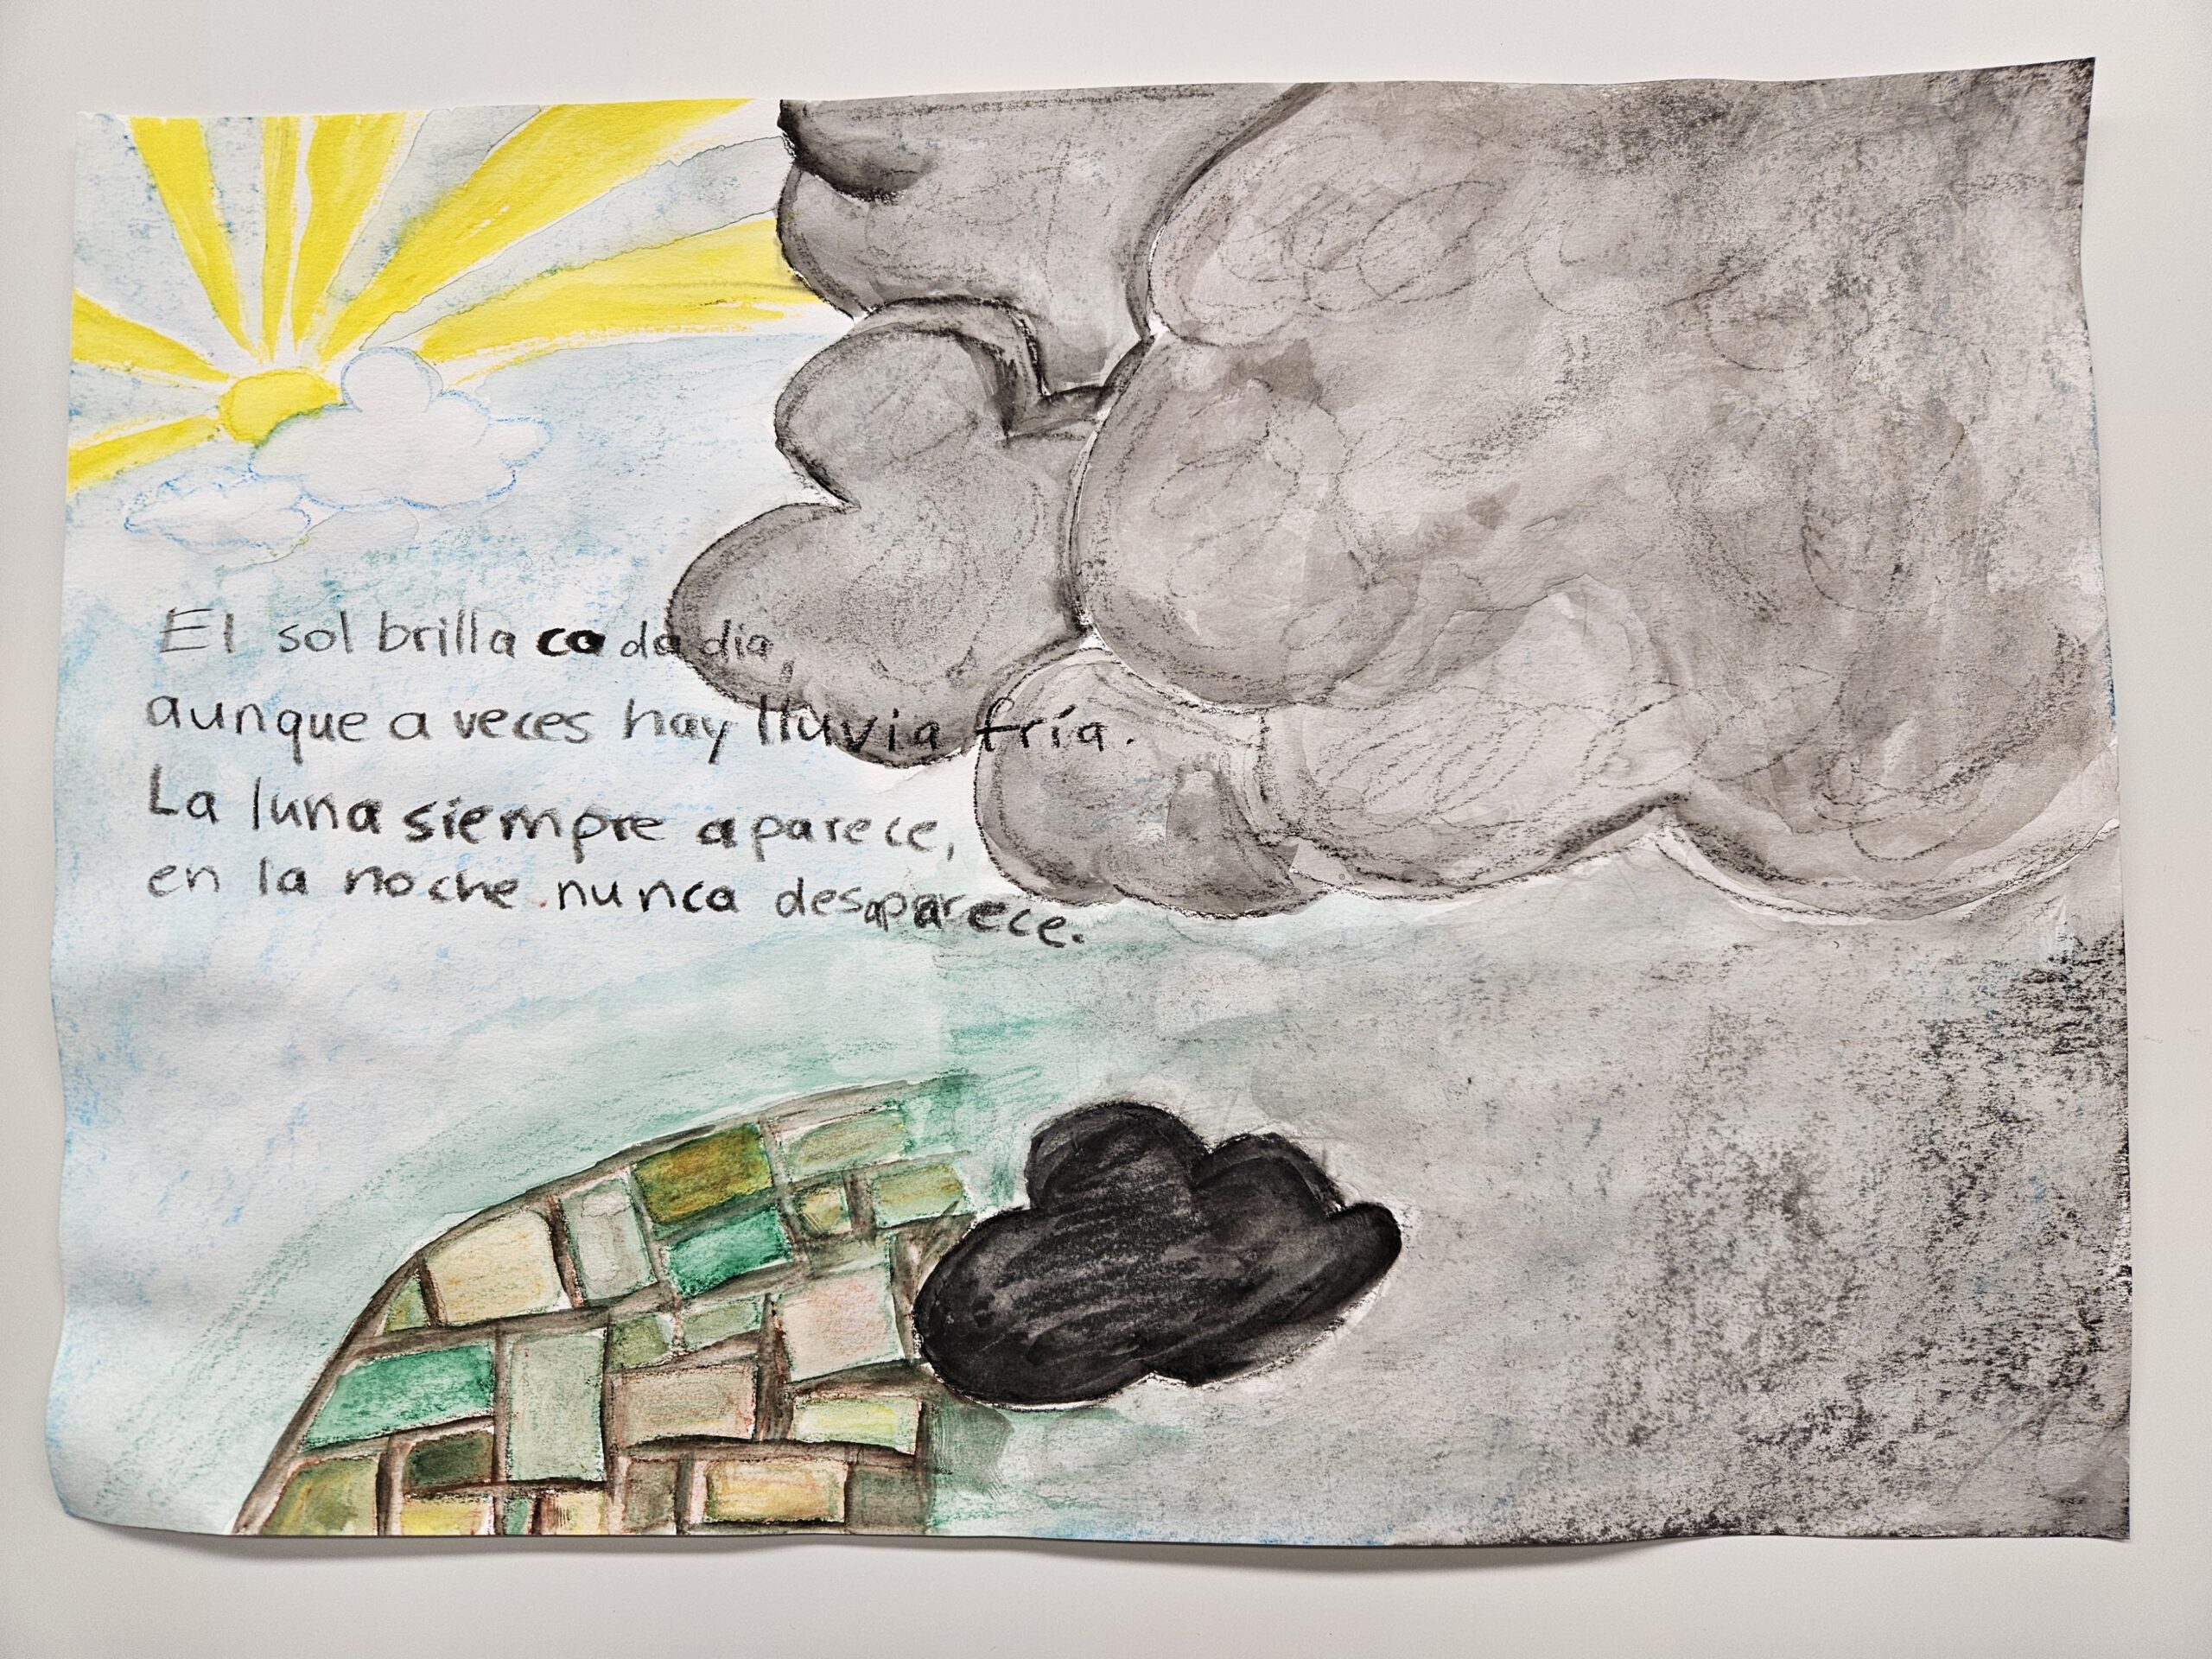 El sol brilla cada dia,
aunque a veces hay lluvia fría.
La luna siempre aparece,
en la noche nunca desaparece.